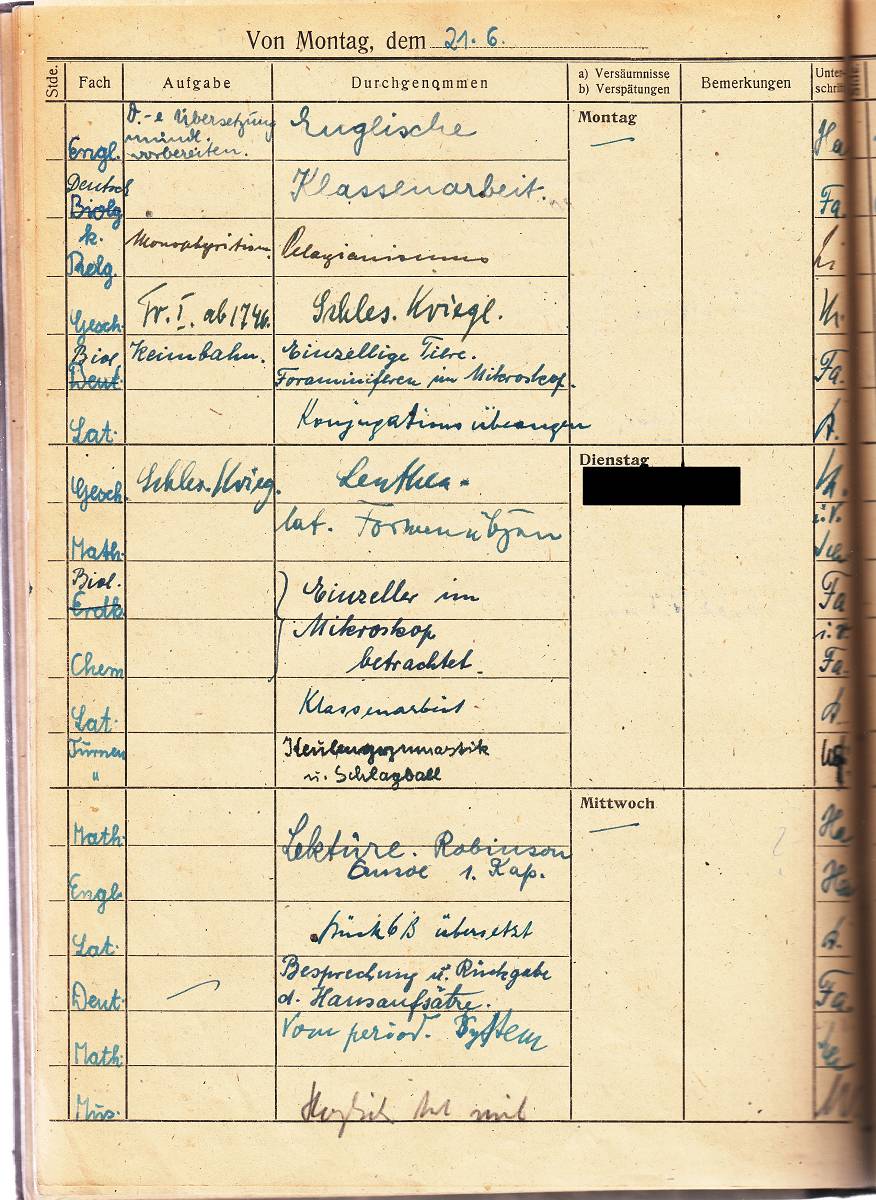 Von Montag, dem 21.6.
Stde. Fach Aufgabe Durchgenommen a) Versäumnisse b) Verspätungen Bemerkungen Unterschrift
Montag
Engl. D.-e Übersetzung mündl. vorbereiten. Englische Ha
Deutsch Biolg Klassenarbeit. Fa.
k. Relg. Pelagianismus
Gesch. Fr. I. ab 1740. Schles. Kriege.
Biol Deut. Keimbahn. Einzellige Tiere. Fa.
Foraminiferen im Mikroskop.
Lat. Konjugationsübungen A.
Dienstag
Gesch. Schles. Krieg. Leuthen
Math. lat. Formenübgen i.V.
Biol. Erdk. Einzeller im Fa
Chem Mikroskop i.V. Fa.
betrachtet.
Lat. Klassenarbeit A.
Turnen " Keulengymnastik
u. Schlagball
Mittwoch
Math. Lektüre. Robinson He
Engl. Crusoe 1. Kap. He
Lat. Stück 6B übersetzt A.
Deut. Besprechung u. Rückgabe Fa
d. Hausaufsätze.
Math. Vom period. System
Mus.